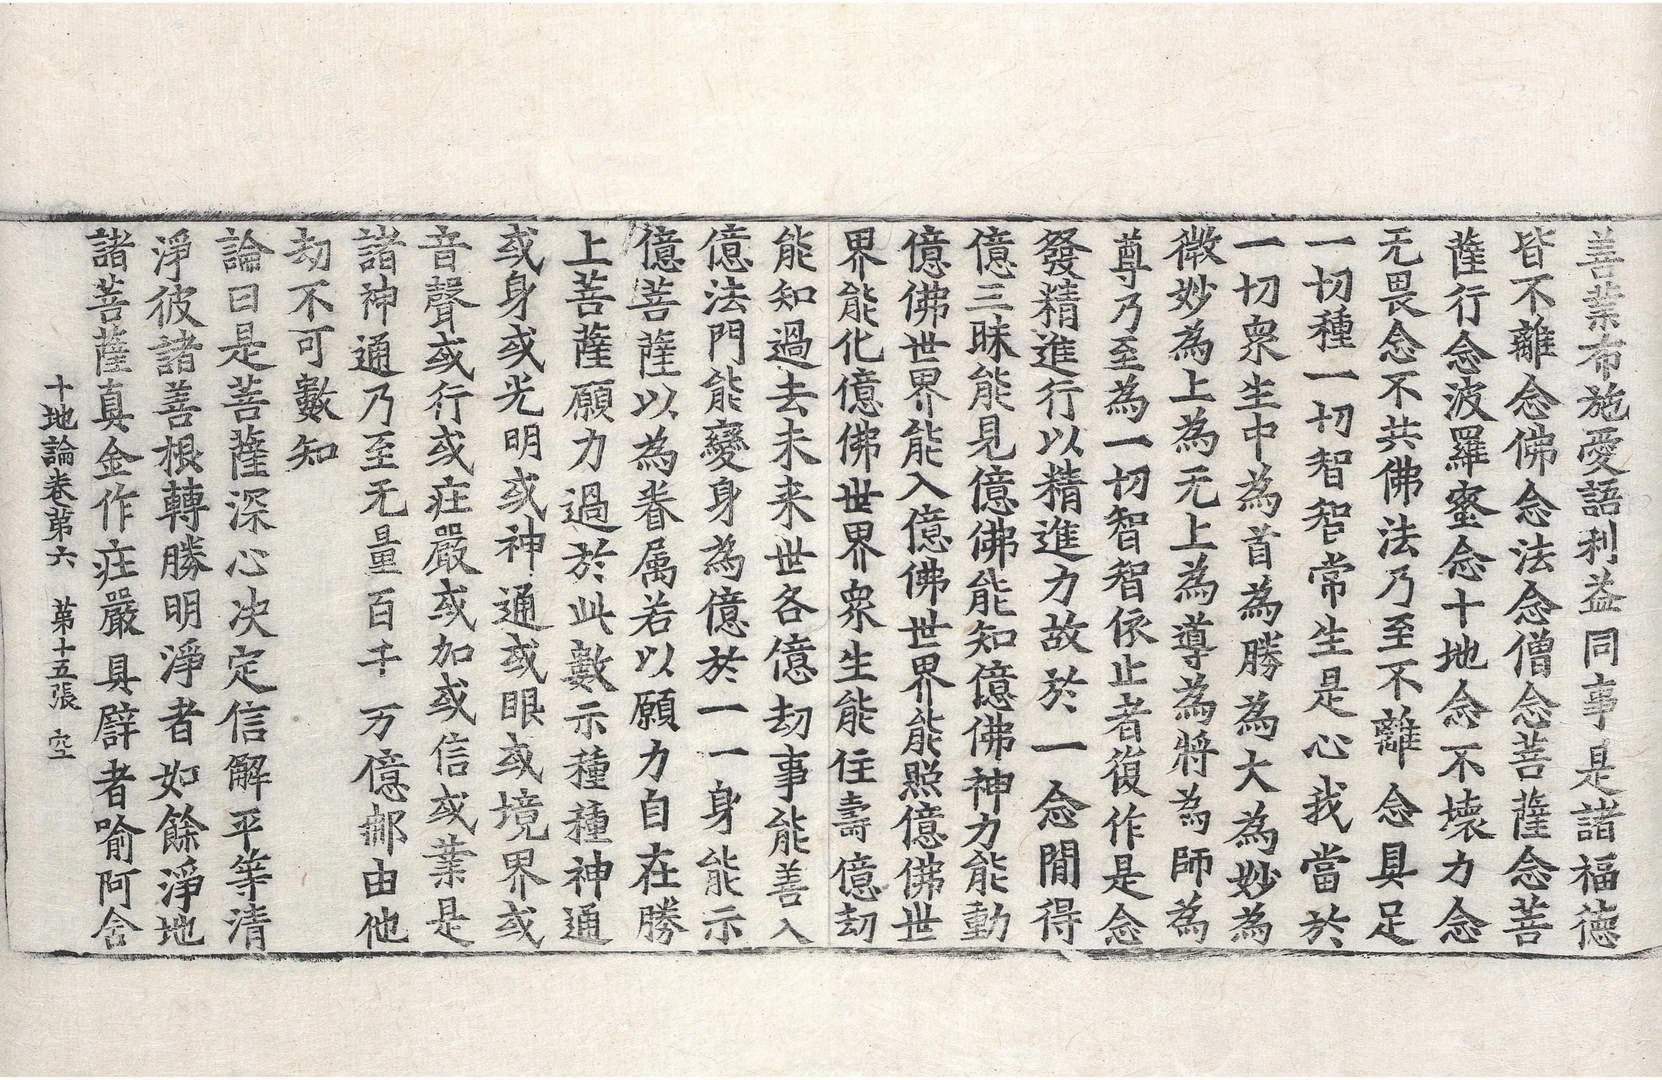 善業布施愛語利益同事是諸福德
皆不離念佛念法念僧念菩薩念菩
薩行念波羅蜜念十地念不壞力念
无畏念不共佛法乃至不離念具足
一切種一切智智常生是心我當於
一切衆生中為首為勝為大為妙為
微妙為上為无上為導為將為師為
尊乃至為一切智智依止者復作是念
發精進行以精進力故於一念閒得
億三昧能見億佛能知億佛神力能動
億佛世界能入億佛世界能照億佛世
界能化億佛世界衆生能住壽億劫
能知過去未来世各億劫事能善入
億法門能變身為億於一一身能示
億菩薩以為眷属若以願力自在勝
上菩薩願力過於此數示種種神通
或身或光明或神通或眼或境界或
音聲或行或疘嚴或加或信或業是
諸神通乃至无量百千万億那由他
劫不可數知
論曰是菩薩深心决定信解平等清
淨彼諸善根轉勝明淨者如餘淨地
諸菩薩真金作疘嚴具譬者喻阿含
十地論卷第六 第十五張 空